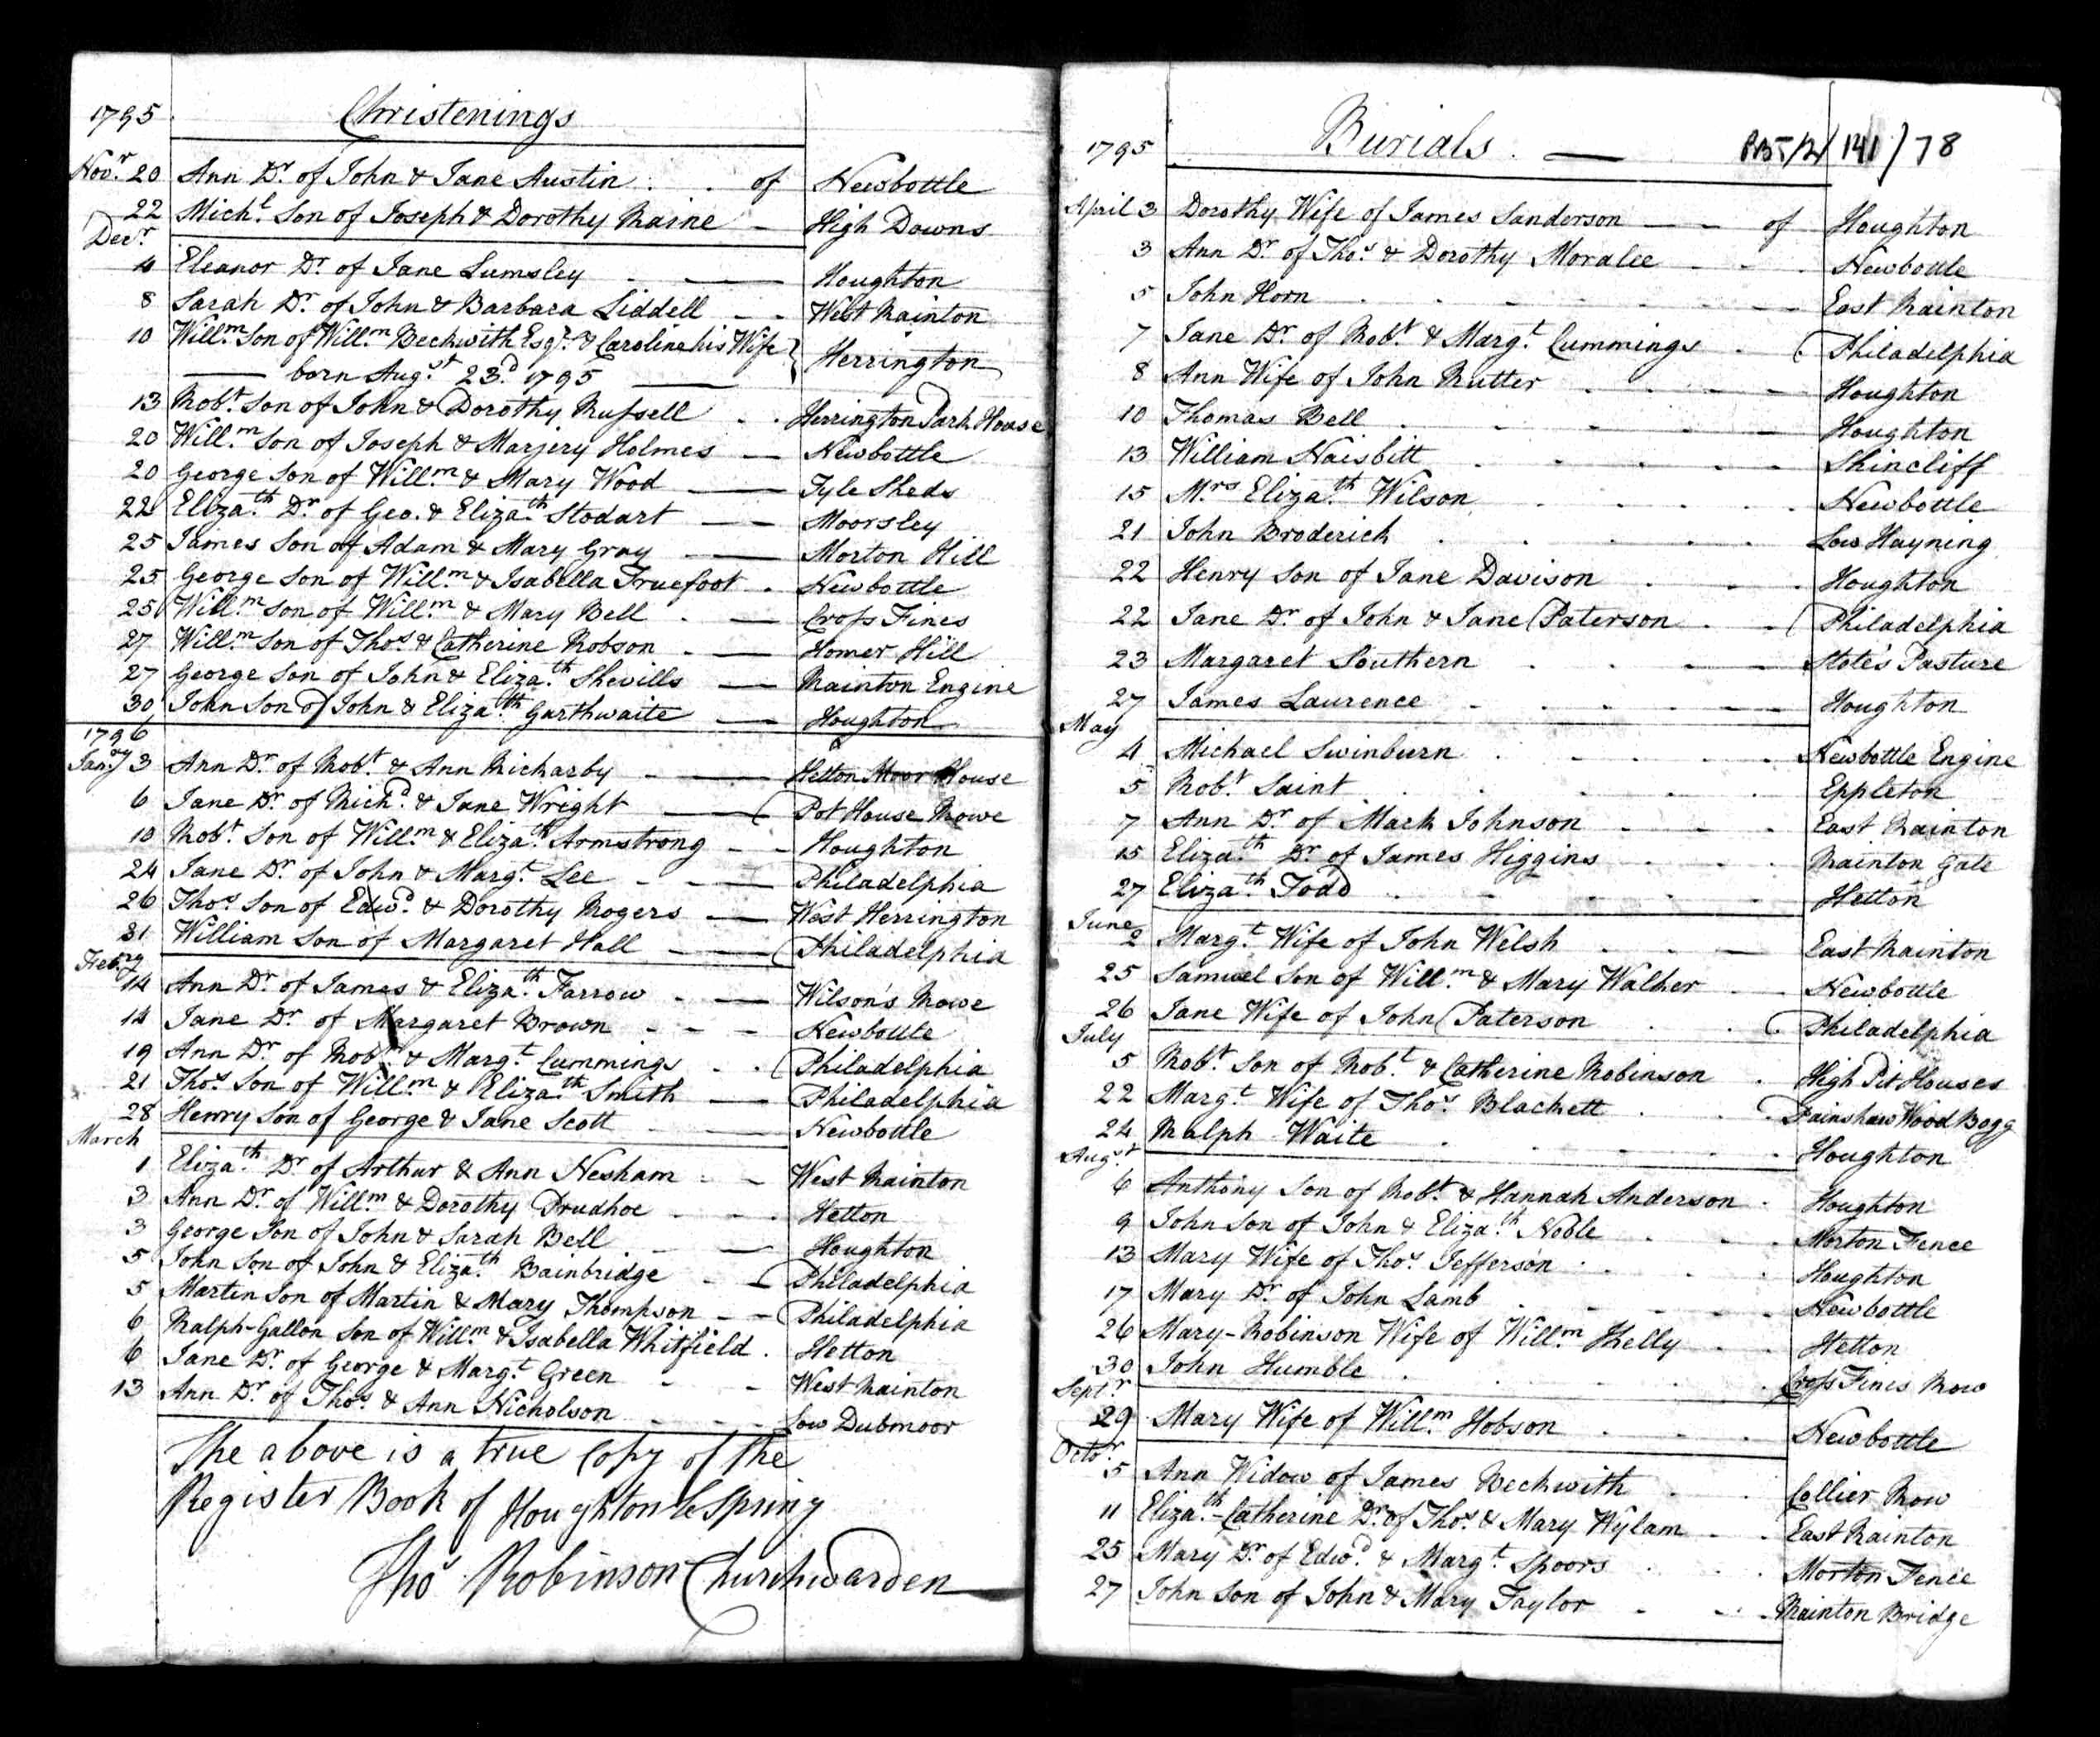 1795 Christenings
Novr. 20 Ann Dr. of John & Jane Austin of Newbottle
22 Michl. Son of Joseph & Dorothy Raine High Downs
Decr.
4 Eleanor Dr. of Jane Lumsley Houghton
8 Sarah Dr. of John & Barbara Liddell West Rainton
10 Willm. Son of Willm. Beckwith Esqr. & Caroline his Wife Herrington
born Augst. 23d. 1795
13 Robt. Son of John & Dorothy Russell Herrington Park House
20 Willm. Son of Joseph & Marjery Holmes Newbottle
20 George Son of Willm. & Mary Wood Tyle Sheds
22 Elizath. Dr. of Geo. & Elizath. Stodart Moorsley
25 James Son of Adam & Mary Gray Morton Hill
25 George Son of Willm. & Isabella Truefoot Newbottle
25 Willm. Son of Willm. & Mary Bell Cross Fines
27 Willm. Son of Thos. & Catherine Robson Homer Hill
27 George Son of John & Elizath. Shevills Rainton Engine
30 John Son of John & Elizath. Garthwaite Houghton
1796
Jany. 3 Ann Dr. of Robt. & Ann Richarby Hetton Moor House
6 Jane Dr. of Richd. & Jane Wright Pot House Rowe
10 Robt. Son of Willm. & Elizath. Armstrong Houghton
24 Jane Dr. of John & Margt. Lee Philadelphia
26 Thos. Son of Edwd. & Dorothy Rogers West Herrington
31 William Son of Margaret Hall Philadelphia
Febry.
14 Ann Dr. of James & Elizath. Farrow Wilson's Rowe
14 Jane Dr. of Margaret Brown Newbottle
19 Ann Dr. of Robt. & Margt. Cummings Philadelphia
21 Thos. Son of Willm. & Elizath. Smith Philadelphia
28 Henry Son of George & Jane Scott Newbottle
March
1 Elizath. Dr. of Arthur & Ann Nesham West Rainton
3 Ann Dr. of Willm. & Dorothy Prudhoe Hetton
3 George Son of John & Sarah Bell Houghton
5 John Son of John & Elizath. Bainbridge Philadelphia
5 Martin Son of Martin & Mary Thompson Philadelphia
6 Ralph-Gallon Son of Willm. & Isabella Whitfield. Hetton
6 Jane Dr. of George & Margt. Green West Rainton
13 Ann Dr. of Thos. & Ann Nicholson Low Dubmoor
The above is a true Copy of the
Register Book of Houghton le Spring
Thos Robinson Churchwarden
1795 Burials. 141/78
April 3 Dorothy Wife of James Sanderson of Houghton
3 Ann Dr. of Thos. & Dorothy Moralee Newbottle
5 John Horn East Rainton
7 Jane Dr. of Robt. & Margt. Cummings Philadelphia
8 Ann Wife of John Rutter Houghton
10 Thomas Bell Houghton
13 William Naisbitt Shincliff
15 Mrs. Elizath. Wilson Newbottle
21 John Broderick Low Hayning
22 Henry Son of Jane Davison Houghton
22 Jane Dr. of John & Jane Paterson Philadelphia
23 Margaret Southern Stote's Pasture
27 James Laurence Houghton
May
4 Michael Swinburn Newbottle Engine
5 Robt. Saint Eppleton
7 Ann Dr. of Mark Johnson East Rainton
15 Elizath. Dr. of James Higgins Rainton Gate
27 Elizath. Todd Hetton
June
2 Margt. Wife of John Welsh East Rainton
25 Samuel Son of Willm. & Mary Walker Newbottle
26 Jane Wife of John Paterson Philadelphia
July
5 Robt. Son of Robt. & Catherine Robinson High Pit Houses
22 Margt. Wife of Thos. Blackett Painshaw Wood Bogg
24 Ralph Waite Houghton
Augst.
6 Anthony Son of Robt. & Hannah Anderson Houghton
9 John Son of John & Elizath. Noble Morton Fence
13 Mary Wife of Thos. Jefferson Houghton
17 Mary Dr. of John Lamb Newbottle
26 Mary-Robinson Wife of Willm. Kelly Hetton
30 John Humble Cross Fines Row
Septr.
29 Mary Wife of Willm. Hobson Newbottle
Octor.
5 Ann Widow of James Beckwith Collier Row
11 Elizath.-Catherine Dr. of Thos. & Mary Wylam East Rainton
25 Mary Dr. of Edwd. & Margt. Spoors Morton Fence
27 John Son of John & Mary Taylor Rainton Bridge